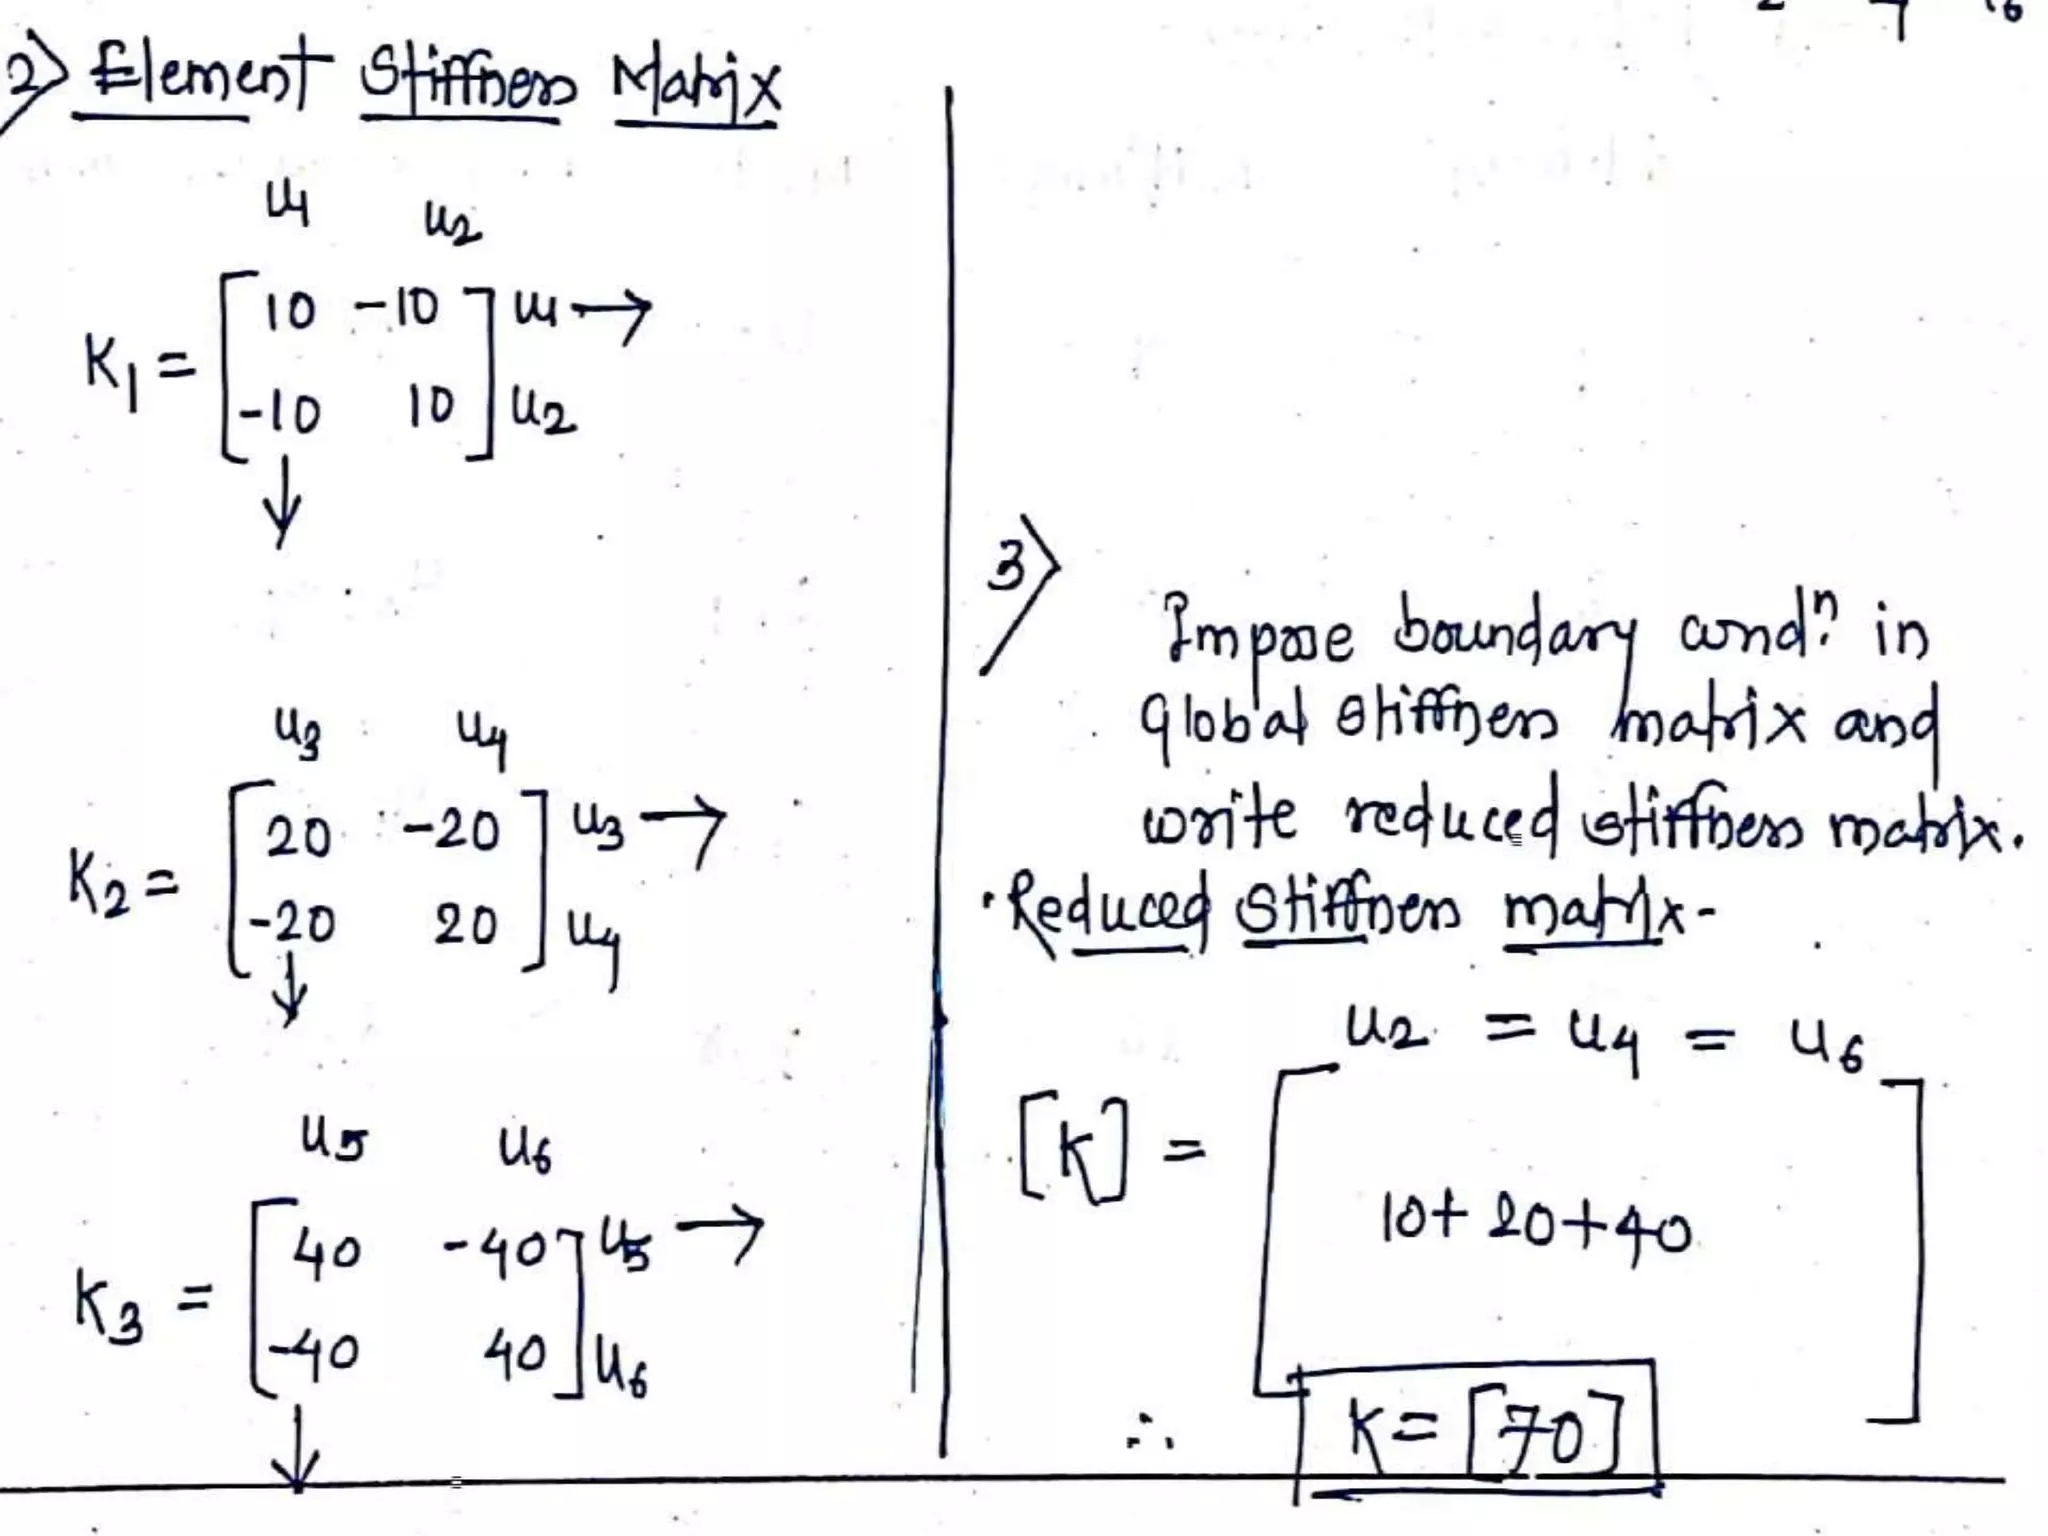 2) Element Stiffness Matrix
u1 u2
K1 = [ 10 -10 ] u1 →
[ -10 10 ] u2
↓
u3 u4
K2 = [ 20 -20 ] u3 →
[ -20 20 ] u4
↓
u5 u6
K3 = [ 40 -40 ] u5 →
[ -40 40 ] u6
↓
3)
Impose boundary condn. in
global stiffness matrix and
write reduced stiffness matrix.
Reduced stiffness matrix-
u2 = u4 = u6
[K] = [ 10+20+40 ]
∴ K = [70]